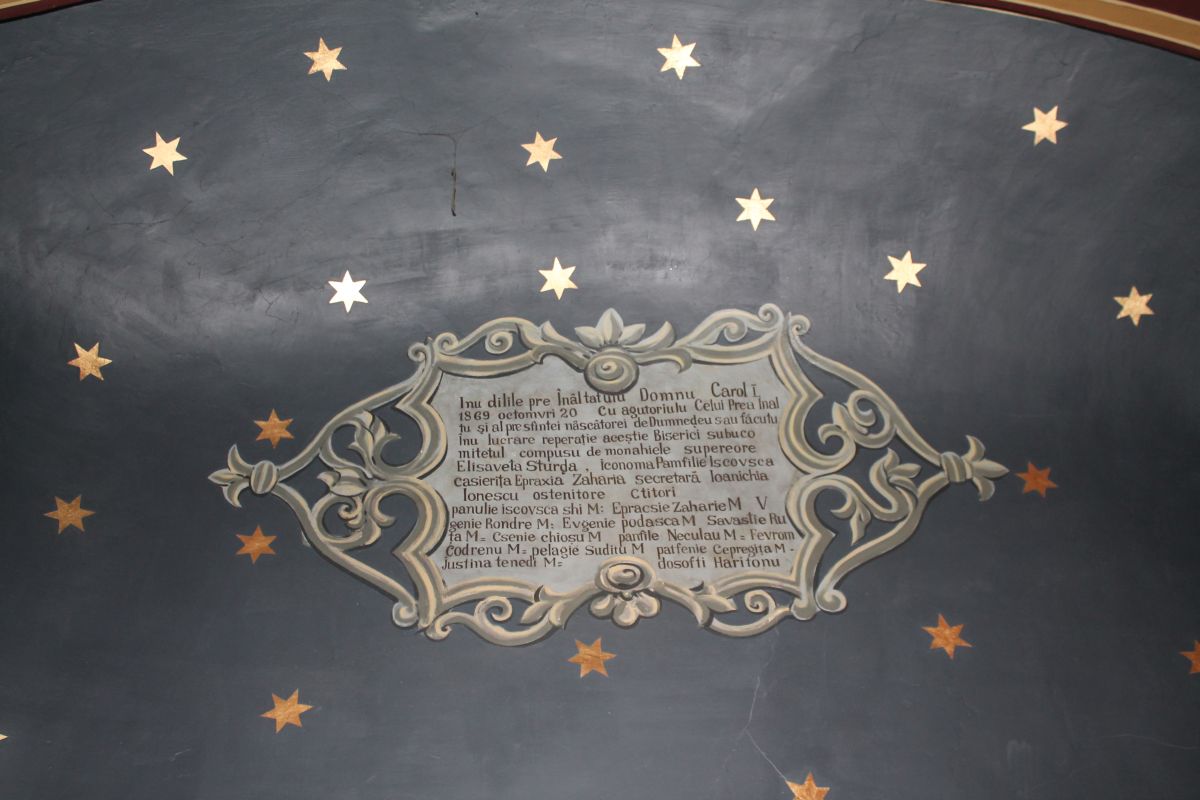 Inu dilile pre Înâltatulu Domnu Carol I
1869 octomvri 20 Cu agutoriulu Celui Prea Inal
tu şi al presfintei născătorei deDumnedeu sau făcutu
înu lucrare reperaţie aceştie Biserici subuco
mitetul compusu de monahiele supereore
Elisaveta Sturda , Iconoma Pamfilie Iscovsca
casieriţa Epraxia Zaharia secretară Ioanichia
Ionescu ostenitore Ctitori
panulie iscovsca shi M: Epracsie Zaharie M V
genie Rondre M: Evgenie podasca M Savastie Ru
ţa M= Csenie chioşu M panfile Neculau M= Fevrom
Codrenu M= pelagie Suditu M patfenie Cepregita M-
Justina tenedi M= dosofti Haritonu